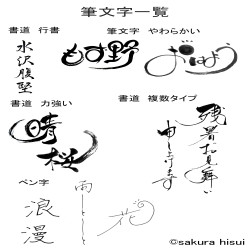 筆文字一覧
書道 行書
筆文字 やわらかい
水沢腹堅
もす野
おはよう
書道 力強い
書道 複数タイプ
晴
桜
残暑お見舞い
申し上げます
ペン字
浪漫
雨しとしと
花
©sakura hisui